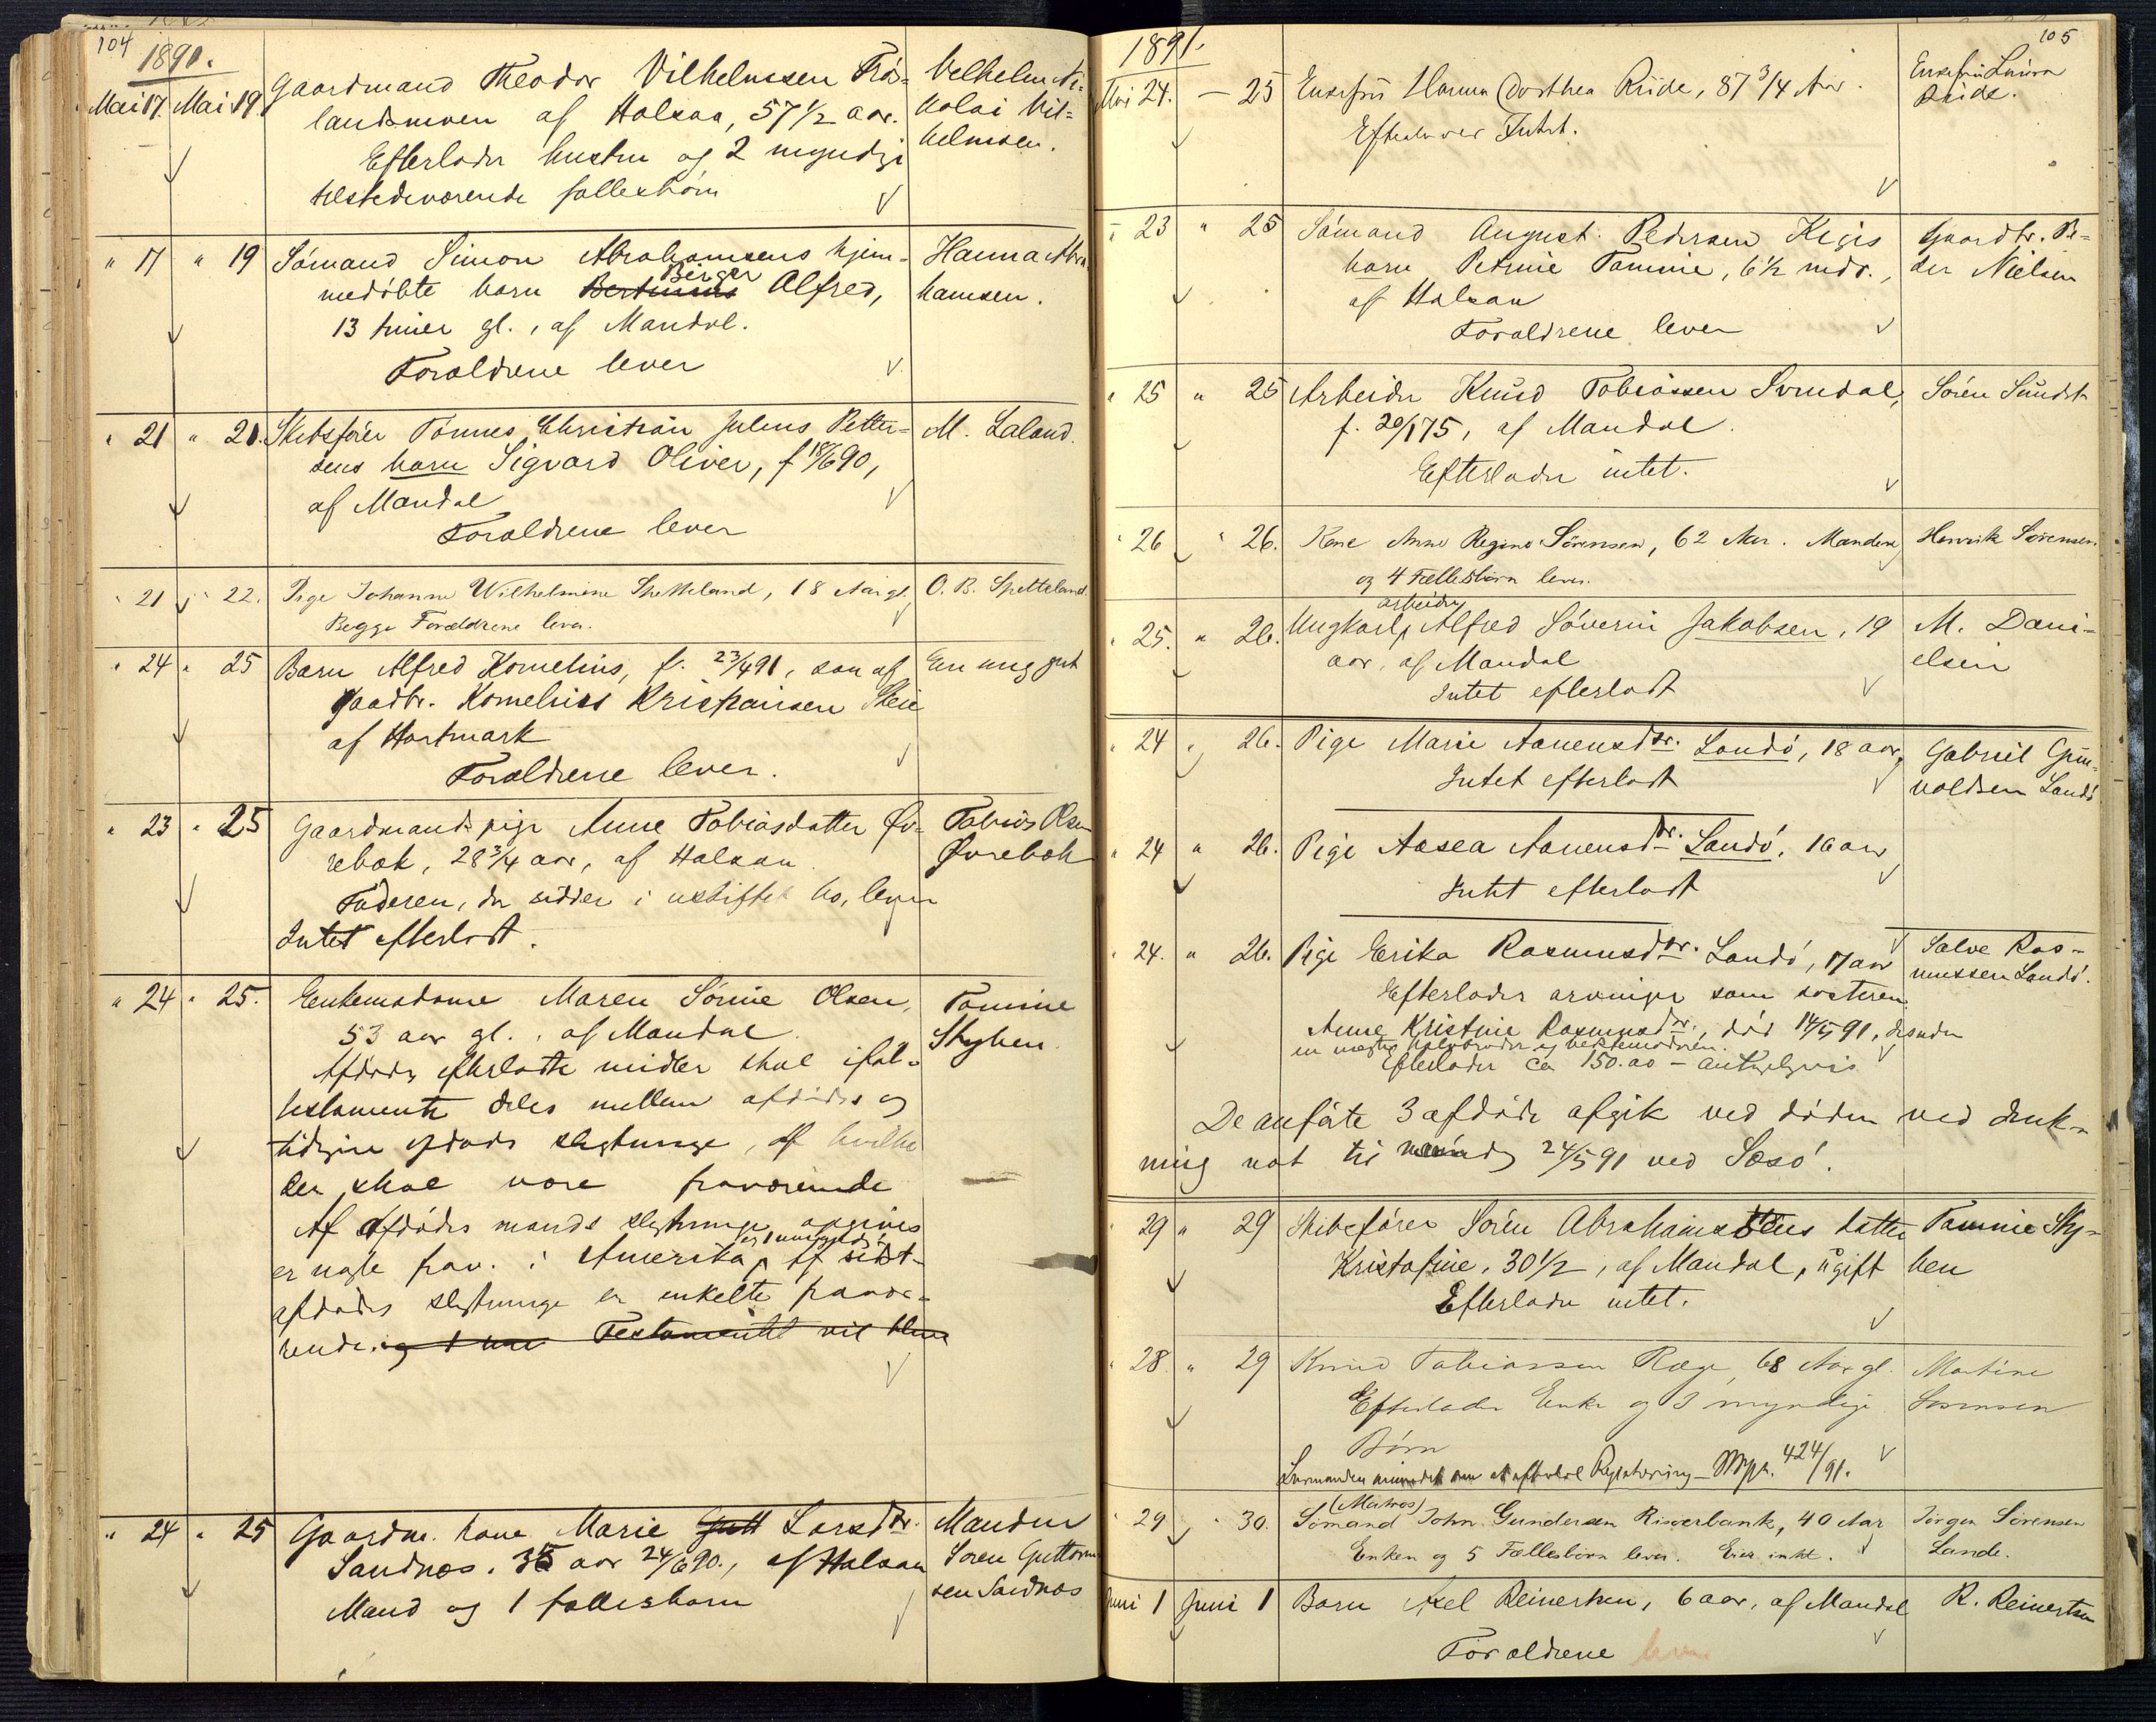 104
1891.
Mai 17. Mai 19. Gaardmand Theodor Vilhelmsen Frø-
landsmoen af Halsaa, 57 1/2 aar.
Efterlader hustru og 2 myndige
tilstedeværende fællesbørn
Vilhelm Ni-
kolai Vil-
helmsen.
" 17 " 19 Sømand Simon Abrahamsens hjem-
medøbte barn Birger Alfred,
13 timer gl., af Mandal.
Forældrene lever
Hanna Abra-
hamsen.
" 21 " 21. Skibsfører Tønnes Christian Julius Petter-
sens barn Sigvard Oliver, f 18/6 90,
af Mandal
Forældrene lever
M. Laland.
" 21 " 22. Pige Johanne Wilhelmine Spetteland, 18 Aar gl.
Begge Forældrene lever.
O. B. Spetteland.
" 24 " 25 Barn Alfred Kornelius, f. 23/4 91, søn af
Gaardbr. Kornelius Kristiansen Skeie
af Hartmark
Forældrene lever.
En ung gut
" 23 " 25 Gaardmandspige Anne Tobiasdatter Øv-
rebøk, 28 3/4 aar, af Halsaa
Faderen, der sidder i uskiftet bo, lever
Intet efterladt.
Tobias Olsen
Øvrebøk
" 24 " 25. Enkemadame Maren Sørine Olsen,
53 aar gl., af Mandal
Afdødes efterladte midler skal iføl-
testamente deles mellem afdødes og
tidligere afdøde slegtninge, af hvilke
der skal være fraværende
Af afdødes mands slegtninge opgives
er nogle frav. i Amerika, og 1 umyndig. Af sidst-
afdødes slegtninge er enkelte fravæ-
rende. og 1 um Testamentet vil blive
Tomine
Styhen.
" 24 " 25 Gaardm. kone Marie Gutt Larsdtr.
Sandnæs, 35 aar 24/6 90., af Halsaa
Mand og 1 fællesbarn
Manden
Søren Guttorm-
sen Sandnæs
105
1891.
Mai 24. — 25 Enkefru Hanna Dorthea Riide, 87 3/4 Aar.
Efterlader Intet.
Enkefru Laura
Riide.
" 23 " 25 Sømand August Pedersen Kigis
barn Petrine Tomine, 6 1/2 mdr.,
af Halsaa
Forældrene lever
Gaardbr. Pe-
der Nielsen
" 25 " 25 Arbeider Knud Tobiassen Svindal,
f. 20/1 75, af Mandal.
Efterlader intet.
Søren Sundt
" 26 " 26. Kone Anne Regine Sørensen, 62 Aar. Manden
og 4 Fællesbørn lever.
Henrik Sørensen.
" 25. " 26. Ungkarl, arbeider Alfred Søverin Jakobsen, 19
aar, af Mandal
Intet efterladt
M. Dani-
elsen
" 24 " 26. Pige Marie Aanensdtr. Landø, 18 aar,
Intet efterladt
Gabriel Gun-
voldsen Landø
" 24 " 26. Pige Aasea Aanensdtr. Landø, 16 aar
Intet efterladt
" 24. " 26. Pige Erika Rasmusdtr. Landø, 17 aar
Efterlader arvinger som søsteren
Anne Kristine Rasmusdtr., død 14/5 91, desuden
en halvbroder og bestemoderen.
Efterlader ca 150.00 — antageligvis
Salve Ras-
mussen Landø.
De anførte 3 afdøde afgik ved døden ved druk-
ning nat til mandag 24/5 91 ved Søsø.
" 29 " 29 Skibsfører Søren Abrahamsens datter
Kristofine, 30 1/2, af Mandal, ugift
Efterlader intet.
Tomine Sty-
hen
" 28 " 29 Knud Tobiassen Ræge, 68 Aar gl.
Efterlader Enke og 3 myndige
Børn
Lensmanden om at afholde Registrering — 424/91.
Martine
Sørensen
" 29 " 30. Sømand (Matros) John Gundersen Risøerbank, 40 Aar
Enken og 5 Fællesbørn lever. Eier intet.
Jørgen Sørensen
Lande.
Juni 1 Juni 1 Barn Axel Reinertsen, 6 aar, af Mandal
Forældrene lever
R. Reinertsen